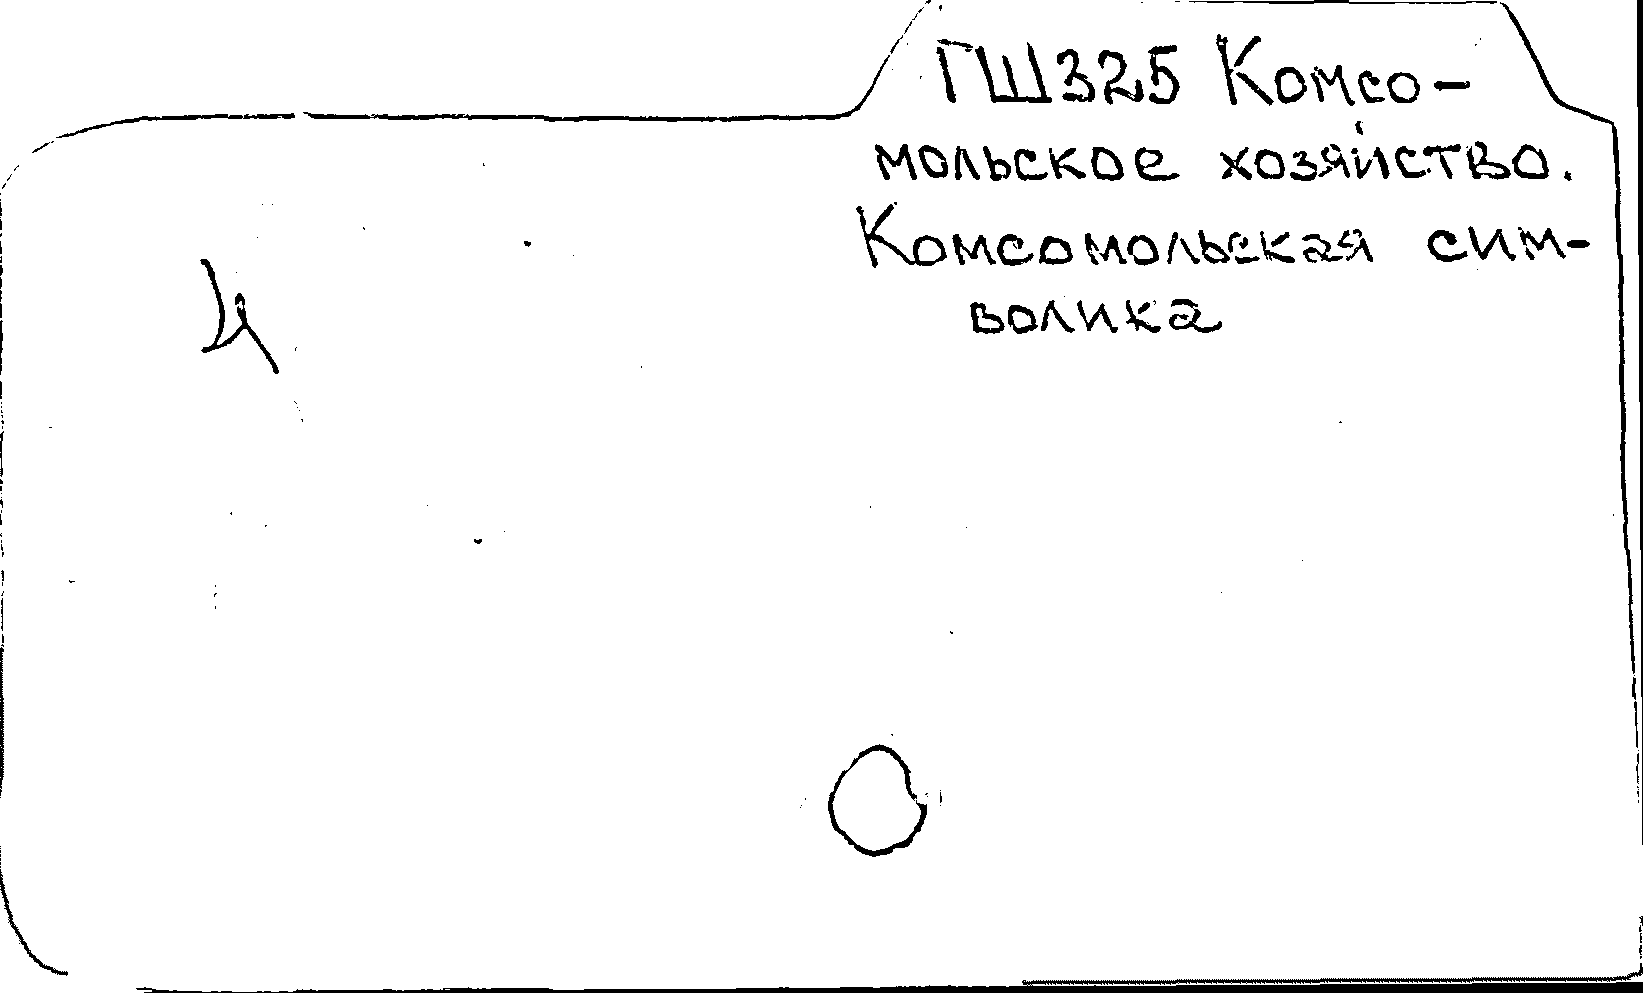 ГШ325 Комсо-
мольское хозяйство.
Комсомольская сим-
волика